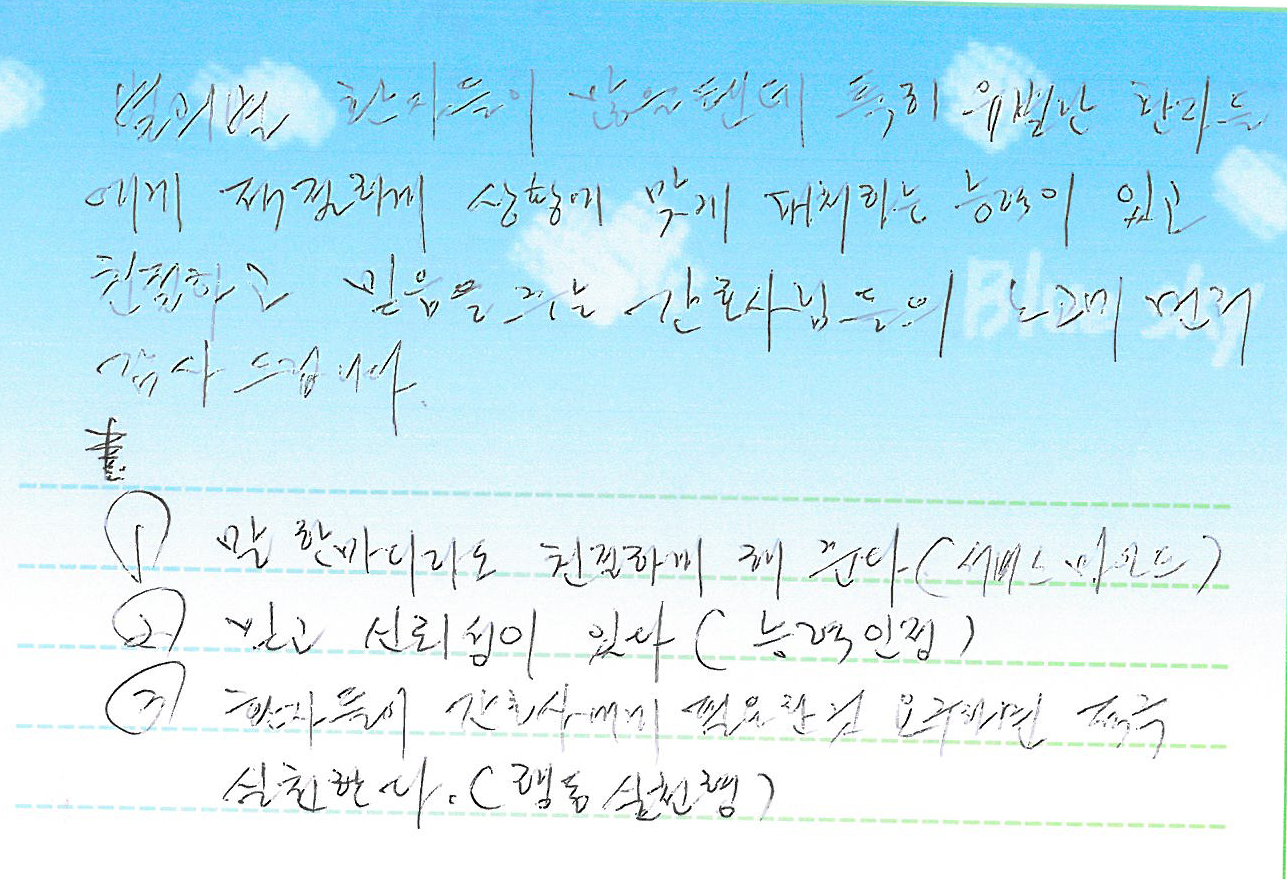 별의별 환자들이 많을텐데 특히 유별난 환자들
에게 적절하게 상황에 맞게 대처하는 능력이 있고
친절하고 믿음을 주는 간호사님들의 노고에 먼저
감사 드립니다.
Blue sky
① 말 한마디라도 친절하게 해 준다 (서비스 마인드)
② 믿고 신뢰성이 있다 (능력인정)
③ 환자들이 간호사에게 필요한 요구하면 적극
실천한다. (행동실천형)